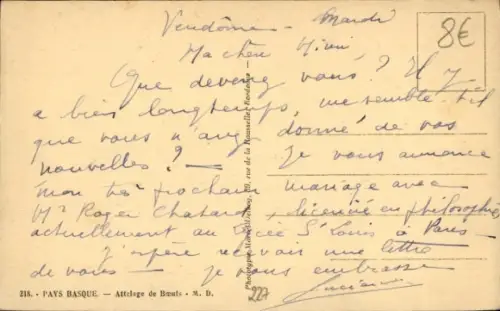 Vendôme - Mardi
8€
Ma chère Mimi
Que devenez vous ? Il y
a bien longtemps, me semble-t'il
que vous n'avez donné de vos
nouvelles ? — Je vous annonce
mon très prochain mariage avec
Mr Roger Chatard, licencié en philosophie
actuellement au Lycée St Louis à Paris -
J'espère recevoir une lettre
de vous - je vous embrasse
218. - PAYS BASQUE. — Attelage de Bœufs - M. D.
227
rue de la Rousselle, Bordeaux